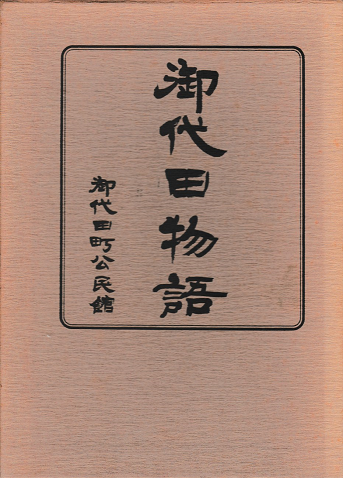 御代田物語
御代田町公民館